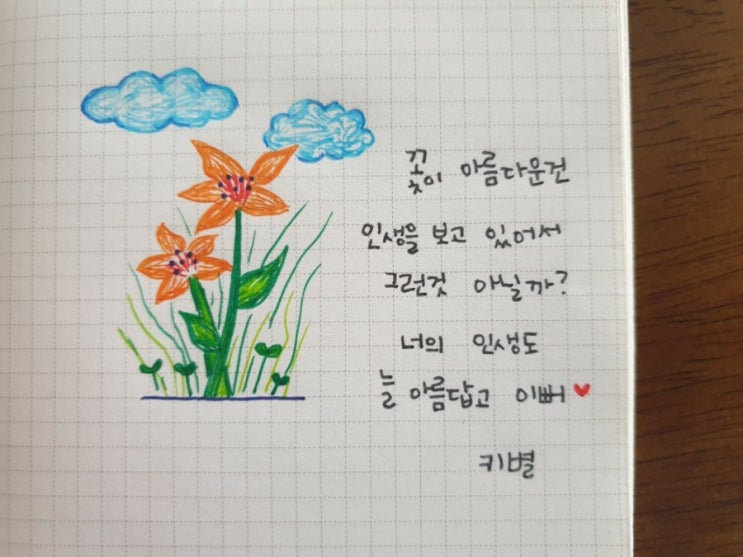 꽃이 아름다운건
인생을 보고 있어서
그런것 아닐까?
너의 인생도
늘 아름답고 이뻐
키별